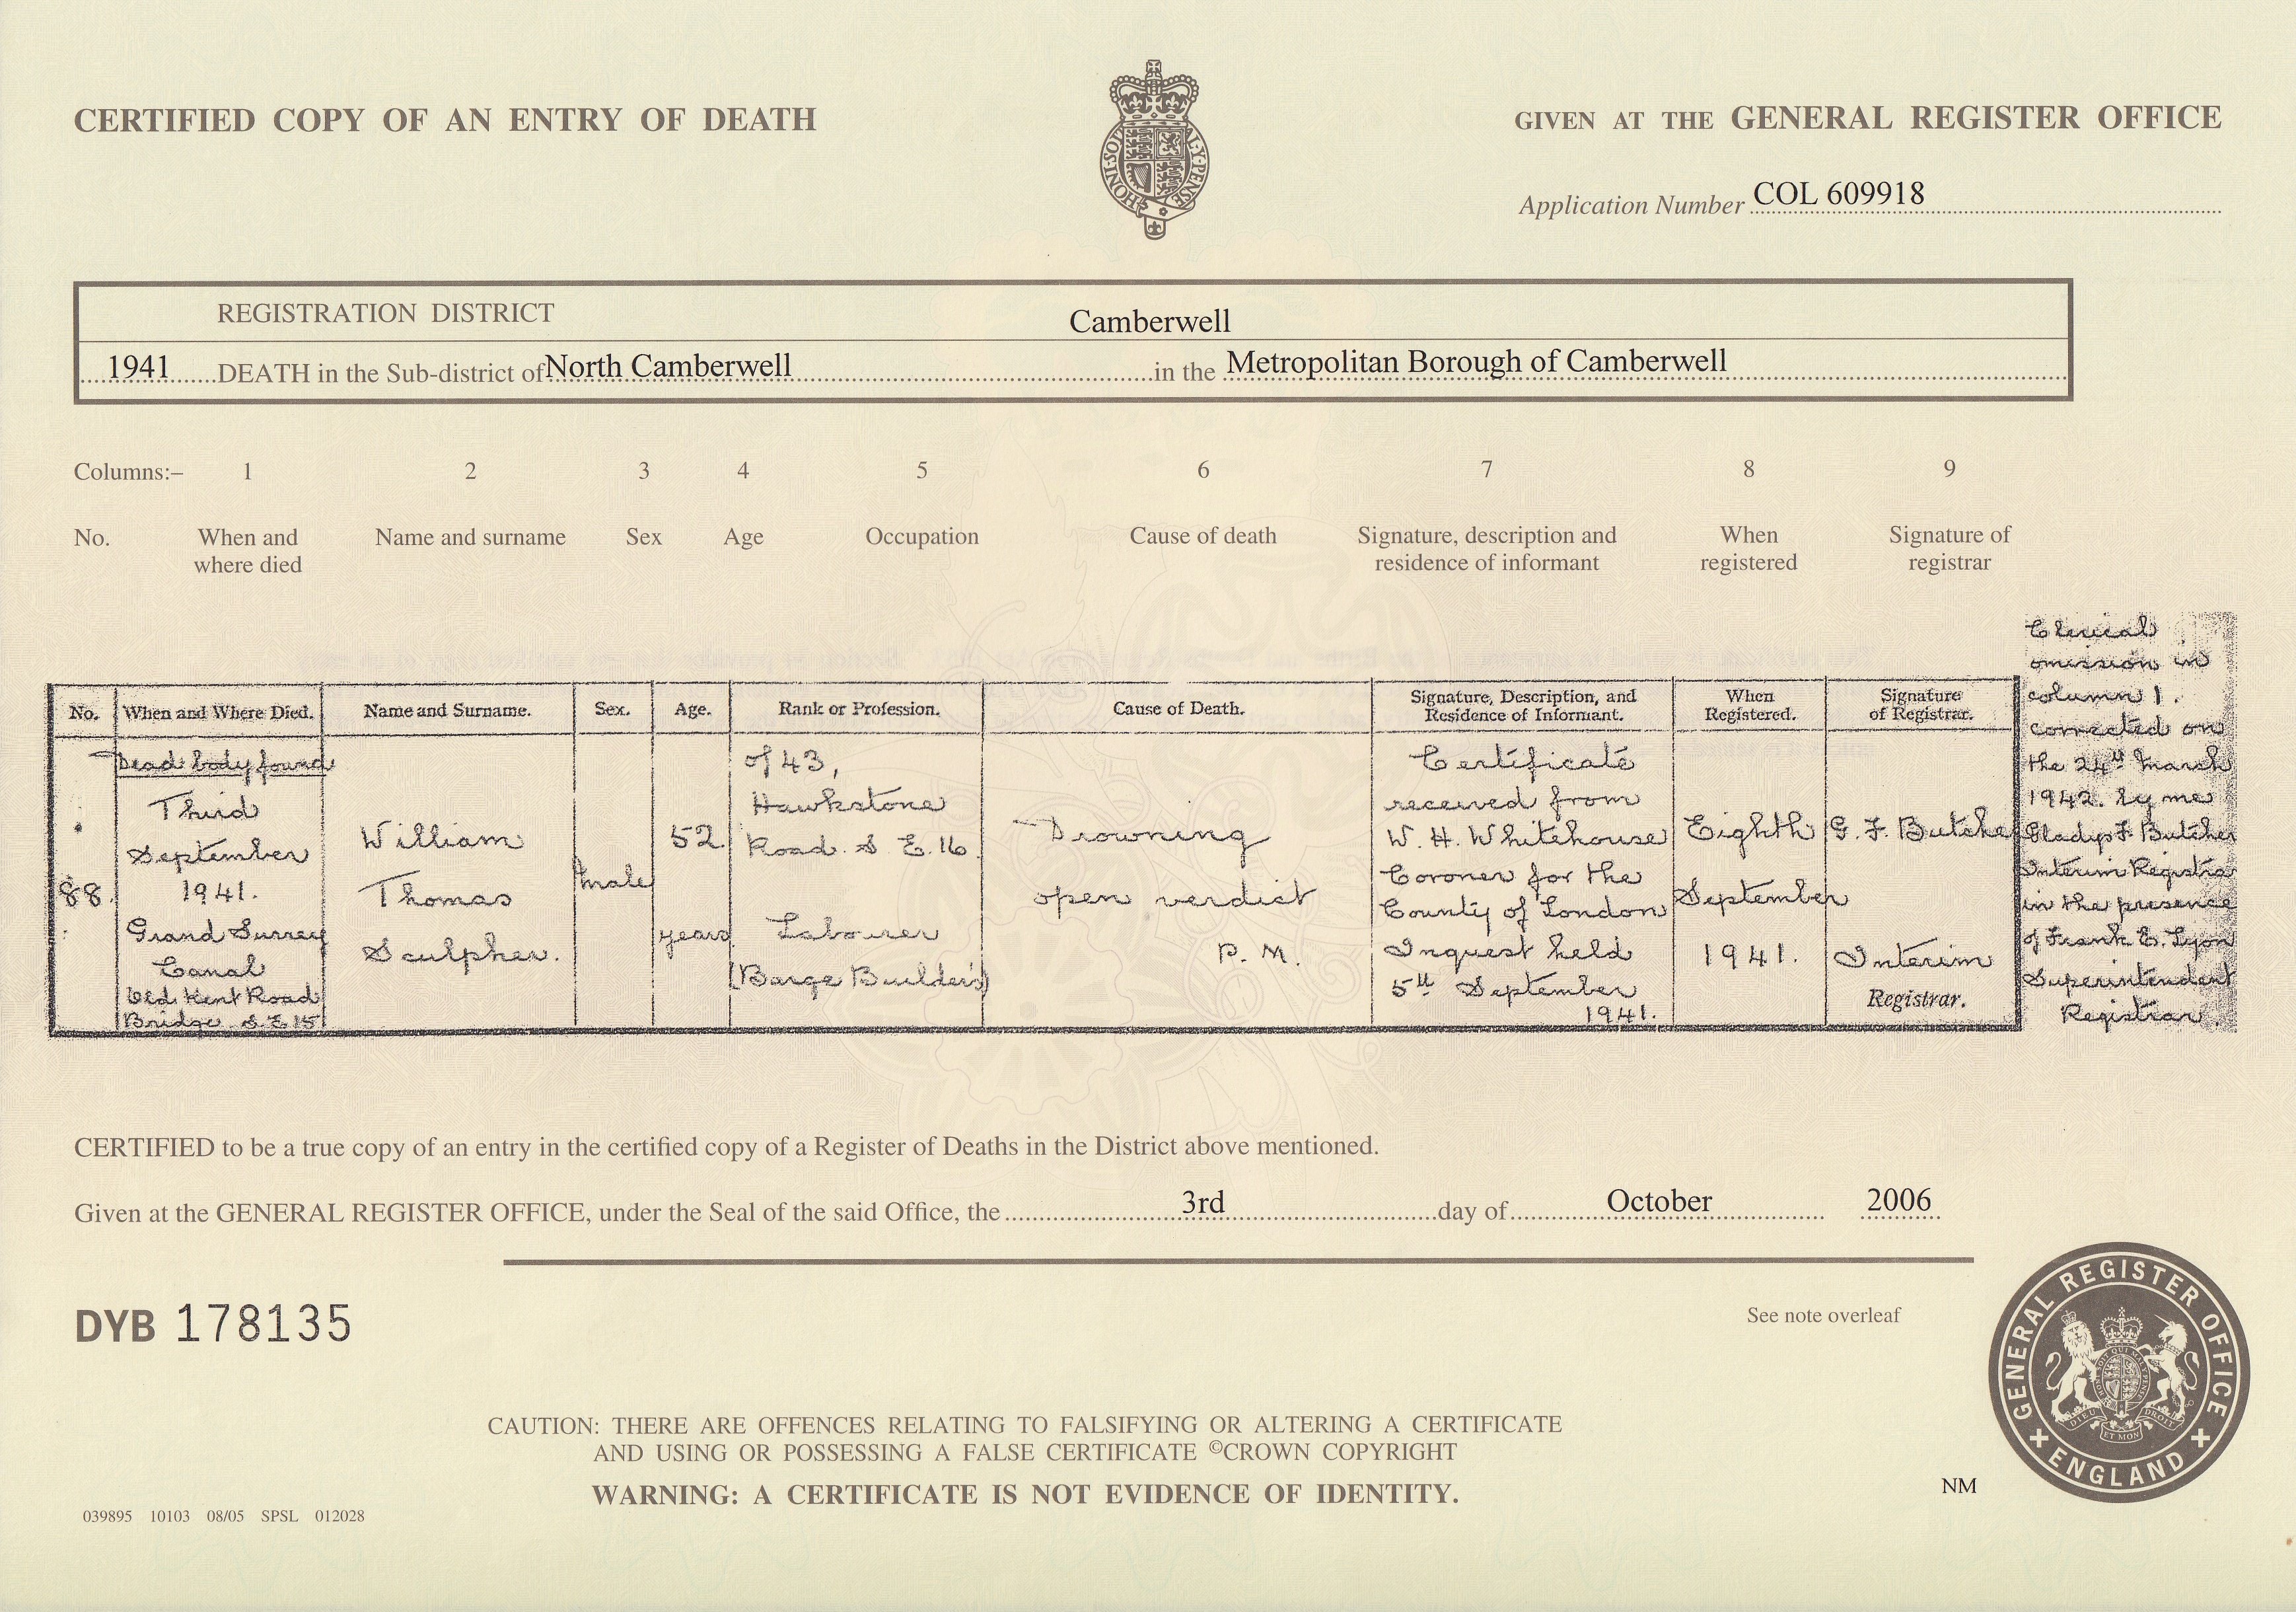 CERTIFIED COPY OF AN ENTRY OF DEATH
HONI·SOIT·QUI·MAL·Y·PENSE
GIVEN AT THE GENERAL REGISTER OFFICE
Application Number COL 609918
REGISTRATION DISTRICT Camberwell
1941 DEATH in the Sub-district of North Camberwell in the Metropolitan Borough of Camberwell
Columns:– 1 2 3 4 5 6 7 8 9
No. When and where died Name and surname Sex Age Occupation Cause of death Signature, description and residence of informant When registered Signature of registrar
No. When and Where Died. Name and Surname. Sex. Age. Rank or Profession. Cause of Death. Signature, Description, and Residence of Informant. When Registered. Signature of Registrar.
88.
Dead body found
Third
September
1941.
Grand Surrey
Canal
Old Kent Road
Bridge S E 15
William
Thomas
Sculpher.
Male
52.
years
of 43,
Hawkstone
Road. S E.16.
Labourer
(Barge Builder's)
Drowning
open verdict
P. M.
Certificate
received from
W. H. Whitehouse
Coroner for the
County of London
Inquest held
5th September
1941.
Eighth
September
1941.
G. F. Butcher
Interim
Registrar.
Clerical
omission in
column 1.
corrected on
the 24th March
1942. by me
Gladys F. Butcher
Interim Registrar
in the presence
of Frank E. Lyon
Superintendent
Registrar.
CERTIFIED to be a true copy of an entry in the certified copy of a Register of Deaths in the District above mentioned.
Given at the GENERAL REGISTER OFFICE, under the Seal of the said Office, the 3rd day of October 2006
DYB 178135
See note overleaf
GENERAL REGISTER OFFICE
ENGLAND
DIEU ET MON DROIT
CAUTION: THERE ARE OFFENCES RELATING TO FALSIFYING OR ALTERING A CERTIFICATE
AND USING OR POSSESSING A FALSE CERTIFICATE ©CROWN COPYRIGHT
WARNING: A CERTIFICATE IS NOT EVIDENCE OF IDENTITY.
NM
039895 10103 08/05 SPSL 012028